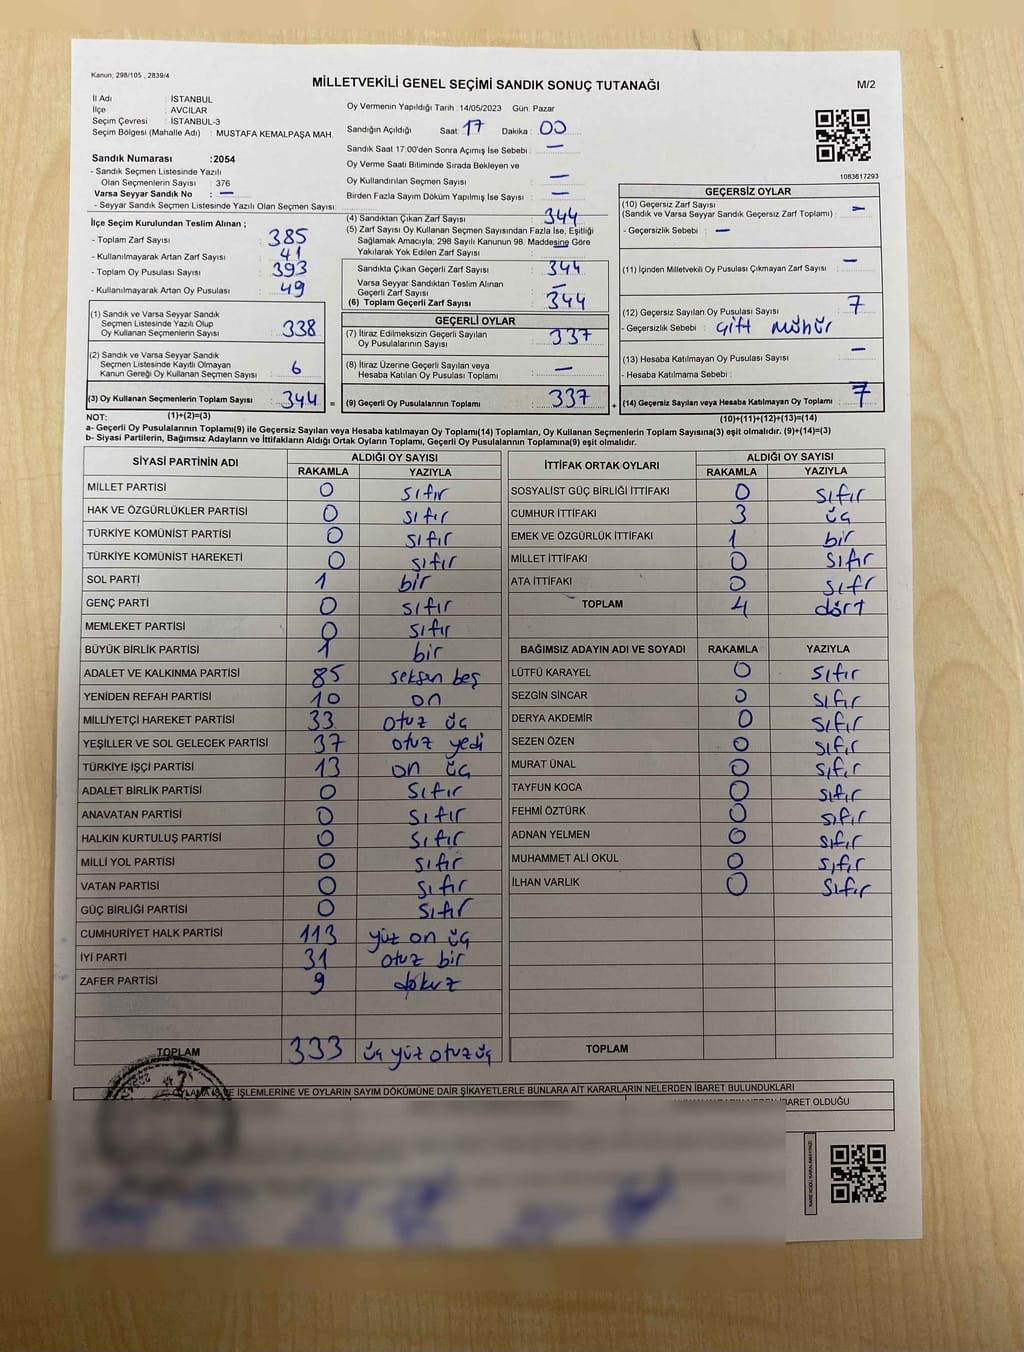 Kanun; 298/105 , 2839/4
MİLLETVEKİLİ GENEL SEÇİMİ SANDIK SONUÇ TUTANAĞI
M/2
İl Adı : İSTANBUL
İlçe : AVCILAR
Seçim Çevresi : İSTANBUL-3
Seçim Bölgesi (Mahalle Adı) : MUSTAFA KEMALPAŞA MAH.
Sandık Numarası :2054
- Sandık Seçmen Listesinde Yazılı
Olan Seçmenlerin Sayısı : 376
Varsa Seyyar Sandık No : —
- Seyyar Sandık Seçmen Listesinde Yazılı Olan Seçmen Sayısı:
İlçe Seçim Kurulundan Teslim Alınan ;
- Toplam Zarf Sayısı : 385
- Kullanılmayarak Artan Zarf Sayısı : 41
- Toplam Oy Pusulası Sayısı : 393
- Kullanılmayarak Artan Oy Pusulası : 49
(1) Sandık ve Varsa Seyyar Sandık
Seçmen Listesinde Yazılı Olup
Oy Kullanan Seçmenlerin Sayısı : 338
(2) Sandık ve Varsa Seyyar Sandık
Seçmen Listesinde Kayıtlı Olmayan
Kanun Gereği Oy Kullanan Seçmen Sayısı : 6
(3) Oy Kullanan Seçmenlerin Toplam Sayısı : 344
Oy Vermenin Yapıldığı Tarih :14/05/2023 Gün: Pazar
Sandığın Açıldığı Saat: 17 Dakika : 00
Sandık Saat 17:00'den Sonra Açımış İse Sebebi : —
Oy Verme Saati Bitiminde Sırada Bekleyen ve
Oy Kullandırılan Seçmen Sayısı : —
Birden Fazla Sayım Döküm Yapılmış İse Sayısı : —
(4) Sandıktan Çıkan Zarf Sayısı : 344
(5) Zarf Sayısı Oy Kullanan Seçmen Sayısından Fazla İse, Eşitliği
Sağlamak Amacıyla, 298 Sayılı Kanunun 98. Maddesine Göre
Yakılarak Yok Edilen Zarf Sayısı : —
Sandıkta Çıkan Geçerli Zarf Sayısı : 344
Varsa Seyyar Sandıktan Teslim Alınan
Geçerli Zarf Sayısı : —
(6) Toplam Geçerli Zarf Sayısı : 344
GEÇERLİ OYLAR
(7) İtiraz Edilmeksizin Geçerli Sayılan
Oy Pusulalarının Sayısı : 337
(8) İtiraz Üzerine Geçerli Sayılan veya
Hesaba Katılan Oy Pusulası Toplamı : —
= (9) Geçerli Oy Pusulalarının Toplamı : 337
1083617293
GEÇERSİZ OYLAR
(10) Geçersiz Zarf Sayısı
(Sandık ve Varsa Seyyar Sandık Geçersiz Zarf Toplamı) : —
- Geçersizlik Sebebi : —
(11) İçinden Milletvekili Oy Pusulası Çıkmayan Zarf Sayısı : —
(12) Geçersiz Sayılan Oy Pusulası Sayısı : 7
- Geçersizlik Sebebi : Çift Mühür
(13) Hesaba Katılmayan Oy Pusulası Sayısı : —
- Hesaba Katılmama Sebebi :
+ (14) Geçersiz Sayılan veya Hesaba Katılmayan Oy Toplamı : 7
NOT: (1)+(2)=(3)
(10)+(11)+(12)+(13)=(14)
a- Geçerli Oy Pusulalarının Toplamı(9) ile Geçersiz Sayılan veya Hesaba katılmayan Oy Toplamı(14) Toplamları, Oy Kullanan Seçmenlerin Toplam Sayısına(3) eşit olmalıdır. (9)+(14)=(3)
b- Siyasi Partilerin, Bağımsız Adayların ve İttifakların Aldığı Ortak Oyların Toplamı, Geçerli Oy Pusulalarının Toplamına(9) eşit olmalıdır.
SİYASİ PARTİNİN ADI
ALDIĞI OY SAYISI
RAKAMLA YAZIYLA
MİLLET PARTİSİ 0 sıfır
HAK VE ÖZGÜRLÜKLER PARTİSİ 0 sıfır
TÜRKİYE KOMÜNİST PARTİSİ 0 sıfır
TÜRKİYE KOMÜNİST HAREKETİ 0 sıfır
SOL PARTİ 1 bir
GENÇ PARTİ 0 sıfır
MEMLEKET PARTİSİ 0 sıfır
BÜYÜK BİRLİK PARTİSİ 1 bir
ADALET VE KALKINMA PARTİSİ 85 seksen beş
YENİDEN REFAH PARTİSİ 10 on
MİLLİYETÇİ HAREKET PARTİSİ 33 otuz üç
YEŞİLLER VE SOL GELECEK PARTİSİ 37 otuz yedi
TÜRKİYE İŞÇİ PARTİSİ 13 on üç
ADALET BİRLİK PARTİSİ 0 sıfır
ANAVATAN PARTİSİ 0 sıfır
HALKIN KURTULUŞ PARTİSİ 0 sıfır
MİLLİ YOL PARTİSİ 0 sıfır
VATAN PARTİSİ 0 sıfır
GÜÇ BİRLİĞİ PARTİSİ 0 sıfır
CUMHURİYET HALK PARTİSİ 113 yüz on üç
İYİ PARTİ 31 otuz bir
ZAFER PARTİSİ 9 dokuz
TOPLAM 333 üç yüz otuz üç
İTTİFAK ORTAK OYLARI
ALDIĞI OY SAYISI
RAKAMLA YAZIYLA
SOSYALİST GÜÇ BİRLİĞİ İTTİFAKI 0 sıfır
CUMHUR İTTİFAKI 3 üç
EMEK VE ÖZGÜRLÜK İTTİFAKI 1 bir
MİLLET İTTİFAKI 0 sıfır
ATA İTTİFAKI 0 sıfr
TOPLAM 4 dört
BAĞIMSIZ ADAYIN ADI VE SOYADI RAKAMLA YAZIYLA
LÜTFÜ KARAYEL 0 sıfır
SEZGİN SİNCAR 0 sıfır
DERYA AKDEMİR 0 sıfır
SEZEN ÖZEN 0 sıfır
MURAT ÜNAL 0 sıfır
TAYFUN KOCA 0 sıfır
FEHMİ ÖZTÜRK 0 sıfır
ADNAN YELMEN 0 sıfır
MUHAMMET ALİ OKUL 0 sıfır
İLHAN VARLIK 0 sıfır
TOPLAM
İŞLEMLERİNE VE OYLARIN SAYIM DÖKÜMÜNE DAİR ŞİKAYETLERLE BUNLARA AİT KARARLARIN NELERDEN İBARET BULUNDUKLARI
İBARET OLDUĞU